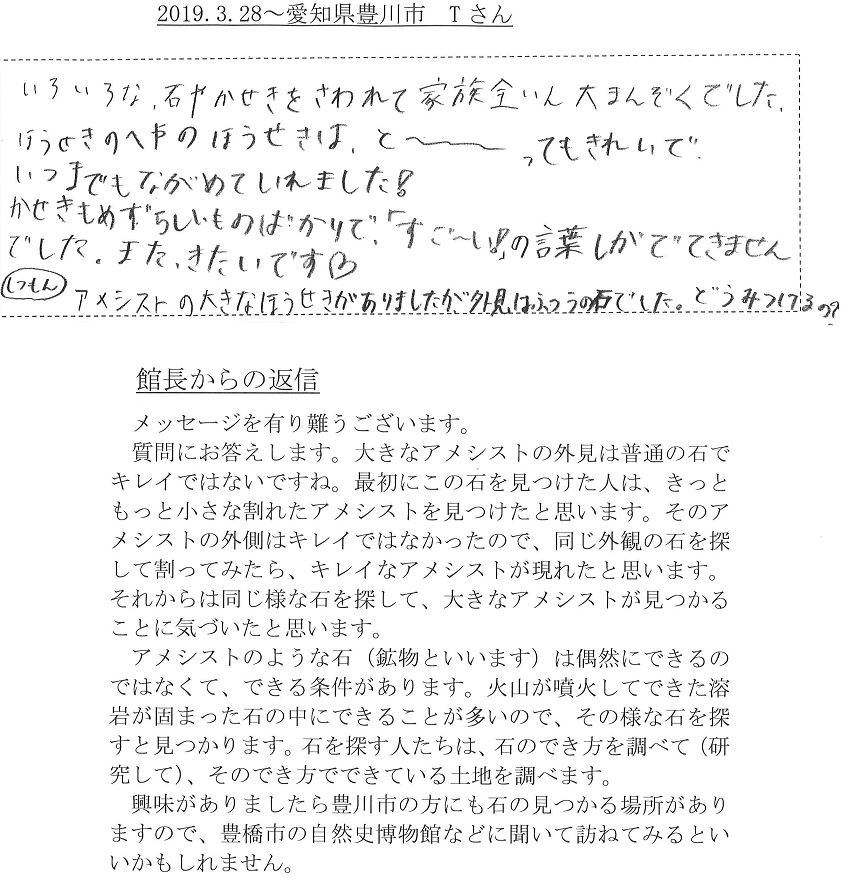 2019.3.28～愛知県豊川市　Tさん
いろいろな、石やかせきをさわれて家族全いん大まんぞくでした、
ほうせきのへやのほうせきは、と〜ってもきれいで、
いつまでもながめていれました！
かせきもめずらしいものばかりで、「すご〜い！」の言葉しかでてきません
でした。また、きたいです♡
しつもん アメシストの大きなほうせきがありましたが外見はふつうの石でした。どうみつけるの？
館長からの返信
メッセージを有り難うございます。
質問にお答えします。大きなアメシストの外見は普通の石で
キレイではないですね。最初にこの石を見つけた人は、きっと
もっと小さな割れたアメシストを見つけたと思います。そのア
メシストの外側はキレイではなかったので、同じ外観の石を探
して割ってみたら、キレイなアメシストが現れたと思います。
それからは同じ様な石を探して、大きなアメシストが見つかる
ことに気づいたと思います。
アメシストのような石（鉱物といいます）は偶然にできるの
ではなくて、できる条件があります。火山が噴火してできた溶
岩が固まった石の中にできることが多いので、その様な石を探
すと見つかります。石を探す人たちは、石のでき方を調べて（研
究して）、そのでき方でできている土地を調べます。
興味がありましたら豊川市の方にも石の見つかる場所があり
ますので、豊橋市の自然史博物館などに聞いて訪ねてみるとい
いかもしれません。